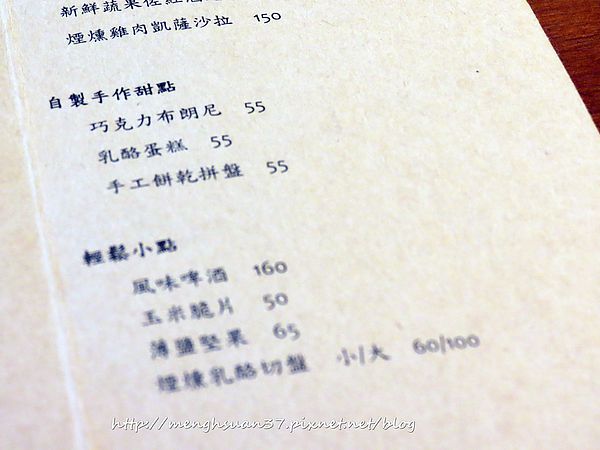 新鮮蔬果佐紅酒
煙燻雞肉凱薩沙拉 150
自製手作甜點
巧克力布朗尼 55
乳酪蛋糕 55
手工餅乾拼盤 55
輕鬆小點
風味啤酒 160
玉米脆片 50
薄鹽堅果 65
煙燻乳酪切盤 小/大 60/100
http://menghsuan37.pixnet.net/blog